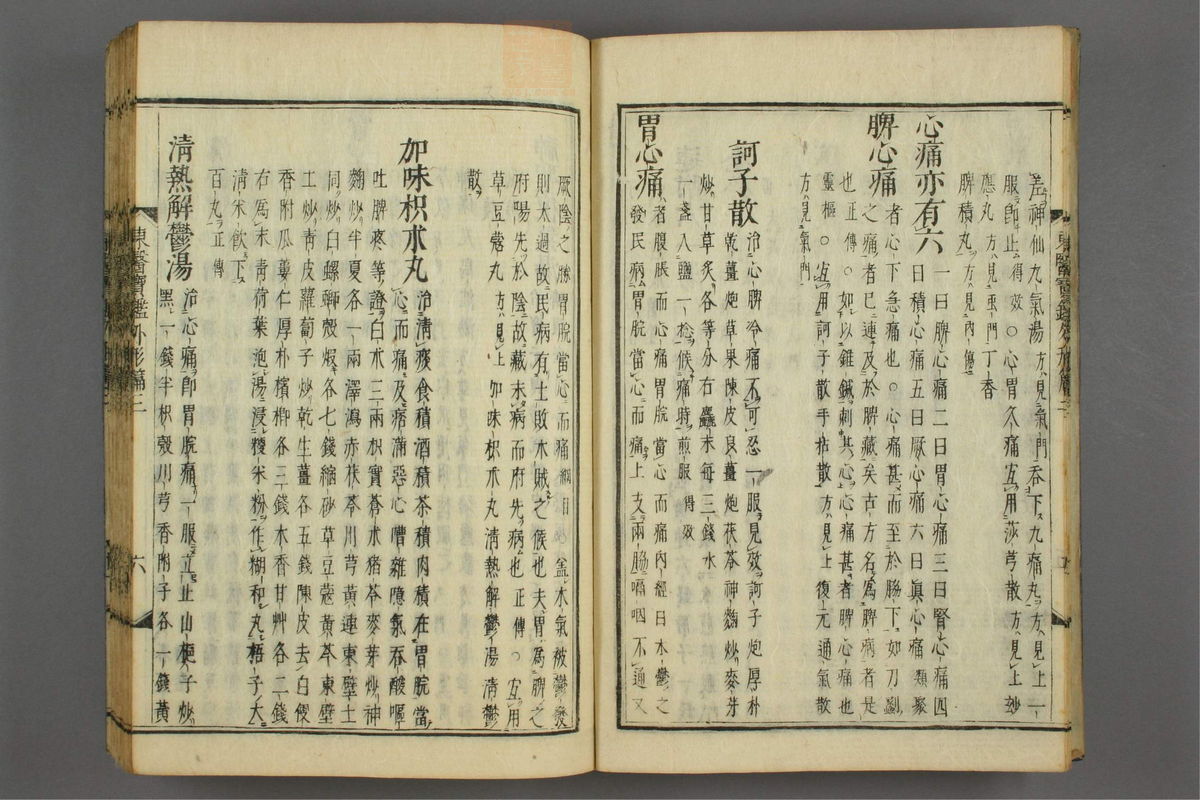 差神仙九氣湯方見氣門吞下九痛丸方見上一
服卽止得效○心胃久痛宜用莎芎散方見上妙
應丸方見蟲門丁香
脾積丸方見內傷
心痛亦有六一曰脾心痛二曰胃心痛三曰腎心痛四
曰積心痛五曰厥心痛六曰眞心痛類聚
脾心痛者心下急痛也○心痛甚而至於脇下如刀劙
之痛者已連及於脾藏矣古方名爲脾病者是
也正傳○如以錐鍼刺其心心痛甚者脾心痛也
靈樞○宜用訶子散手拈散方見上復元通氣散
方見氣門
訶子散治心脾冷痛不可忍一服見效訶子炮厚朴
乾薑炮草果陳皮良薑炮茯苓神麴炒麥芽
炒甘草炙各等分右麤末每三錢水
一盞入鹽一捻候痛時煎服得效
胃心痛者腹脹而心痛胃脘當心而痛內經曰木鬱之
發民病胃脘當心而痛上支兩脇嗝咽不通又
厥陰之勝胃脘當心而痛細目盖木氣被鬱發
則太過故民病有土敗木賊之候也夫胃爲脾之
府陽先於陰故藏未病而府先病也正傳○宜用
草豆蔲丸方見上加味枳朮丸淸熱解鬱湯淸鬱
散
加味枳朮丸治淸痰食積酒積茶積肉積在胃脘當
心而痛及痞滿惡心嘈雜噫氣吞酸嘔
吐脾疼等證白朮三兩枳實蒼朮猪苓麥芽炒神
麴炒半夏各一兩澤瀉赤茯苓川芎黃連東壁土
同炒白螺螄殼煆各七錢縮砂草豆蔲黃芩東壁
土炒靑皮蘿葍子炒乾生薑各五錢陳皮去白便
香附瓜蔞仁厚朴檳榔各三錢木香甘艸各二錢
右爲末靑荷葉泡湯浸稷米粉作糊和丸梧子大
淸米飮下
百丸正傳
淸熱解鬱湯治心痛卽胃脘痛一服立止山梔子炒
黑一錢半枳殼川芎香附子各一錢黃
東醫寶鑑外形篇三
六